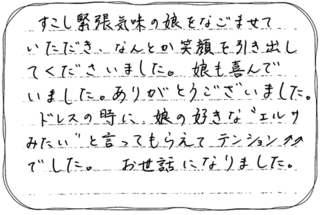 すこし緊張気味の娘をなごませて
いただき、なんとか笑顔を引き出し
てくださいました。娘も喜んで
いました。ありがとうございました。
ドレスの時に、娘の好きな〝エルサ
みたい〟と言ってもらえてテンション⤴⤴
でした。 お世話になりました。